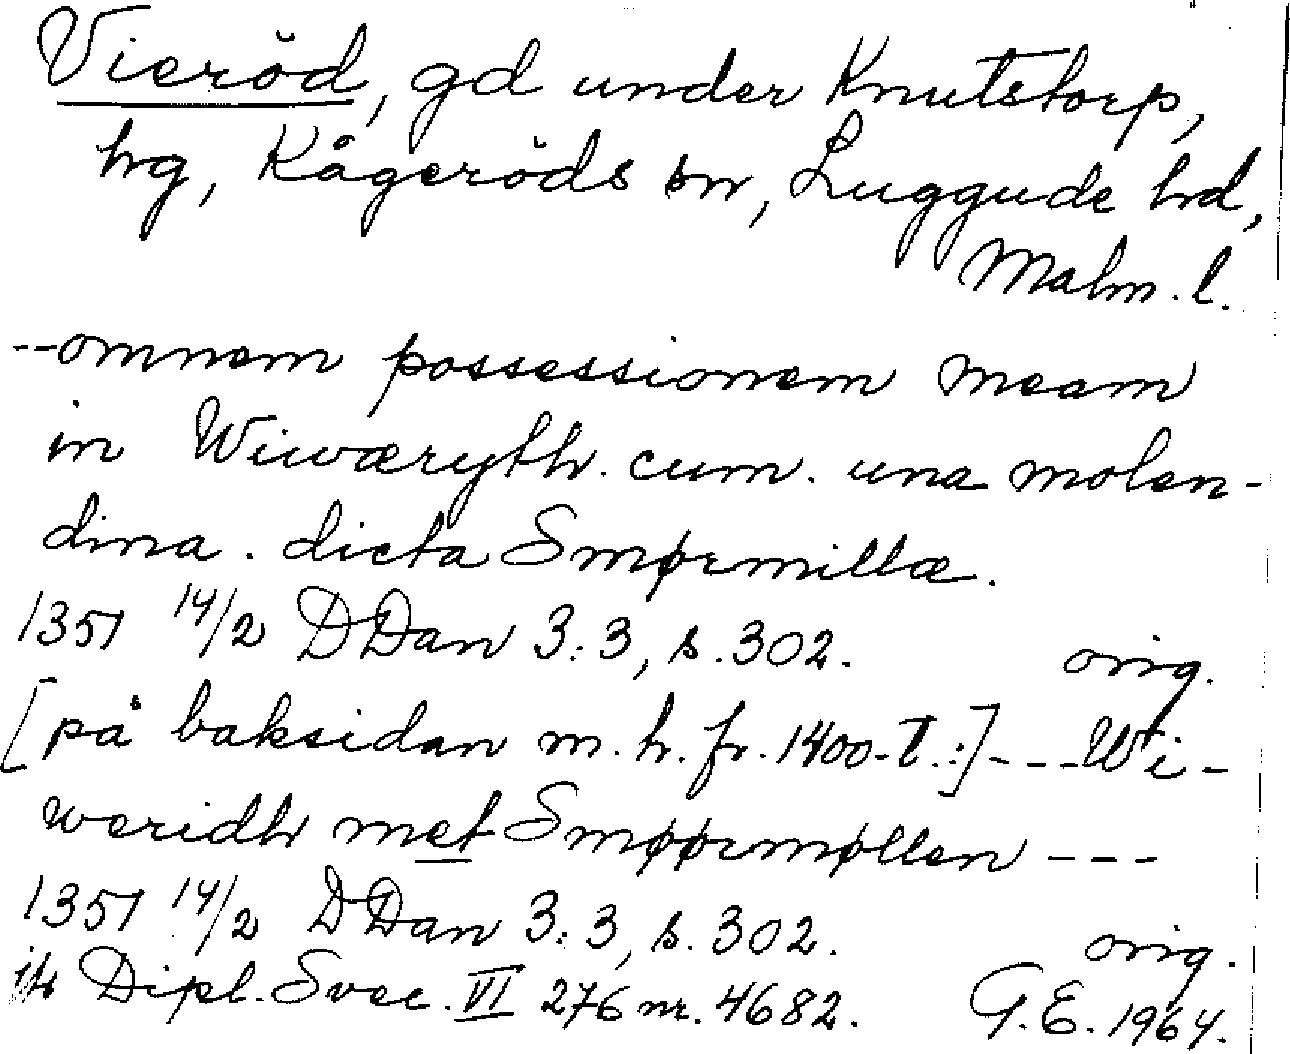 Vieröd, gd under Knutstorp,
hg, Kågeröds sn, Luggude hd,
Malm. l.
--omnem possessionem meam
in Wiwæryth. cum. una molen-
dina. dicta Smørmillæ.
1351 14/2 DDan 3:3, s. 302. orig.
[på baksidan m. h. fr. 1400-t.:] --- Wi-
weridh met Smøørmøllen ---
1351 14/2 DDan 3:3, s. 302. orig.
jfr Dipl. Svec. VI 276 nr. 4682. G.E. 1964.